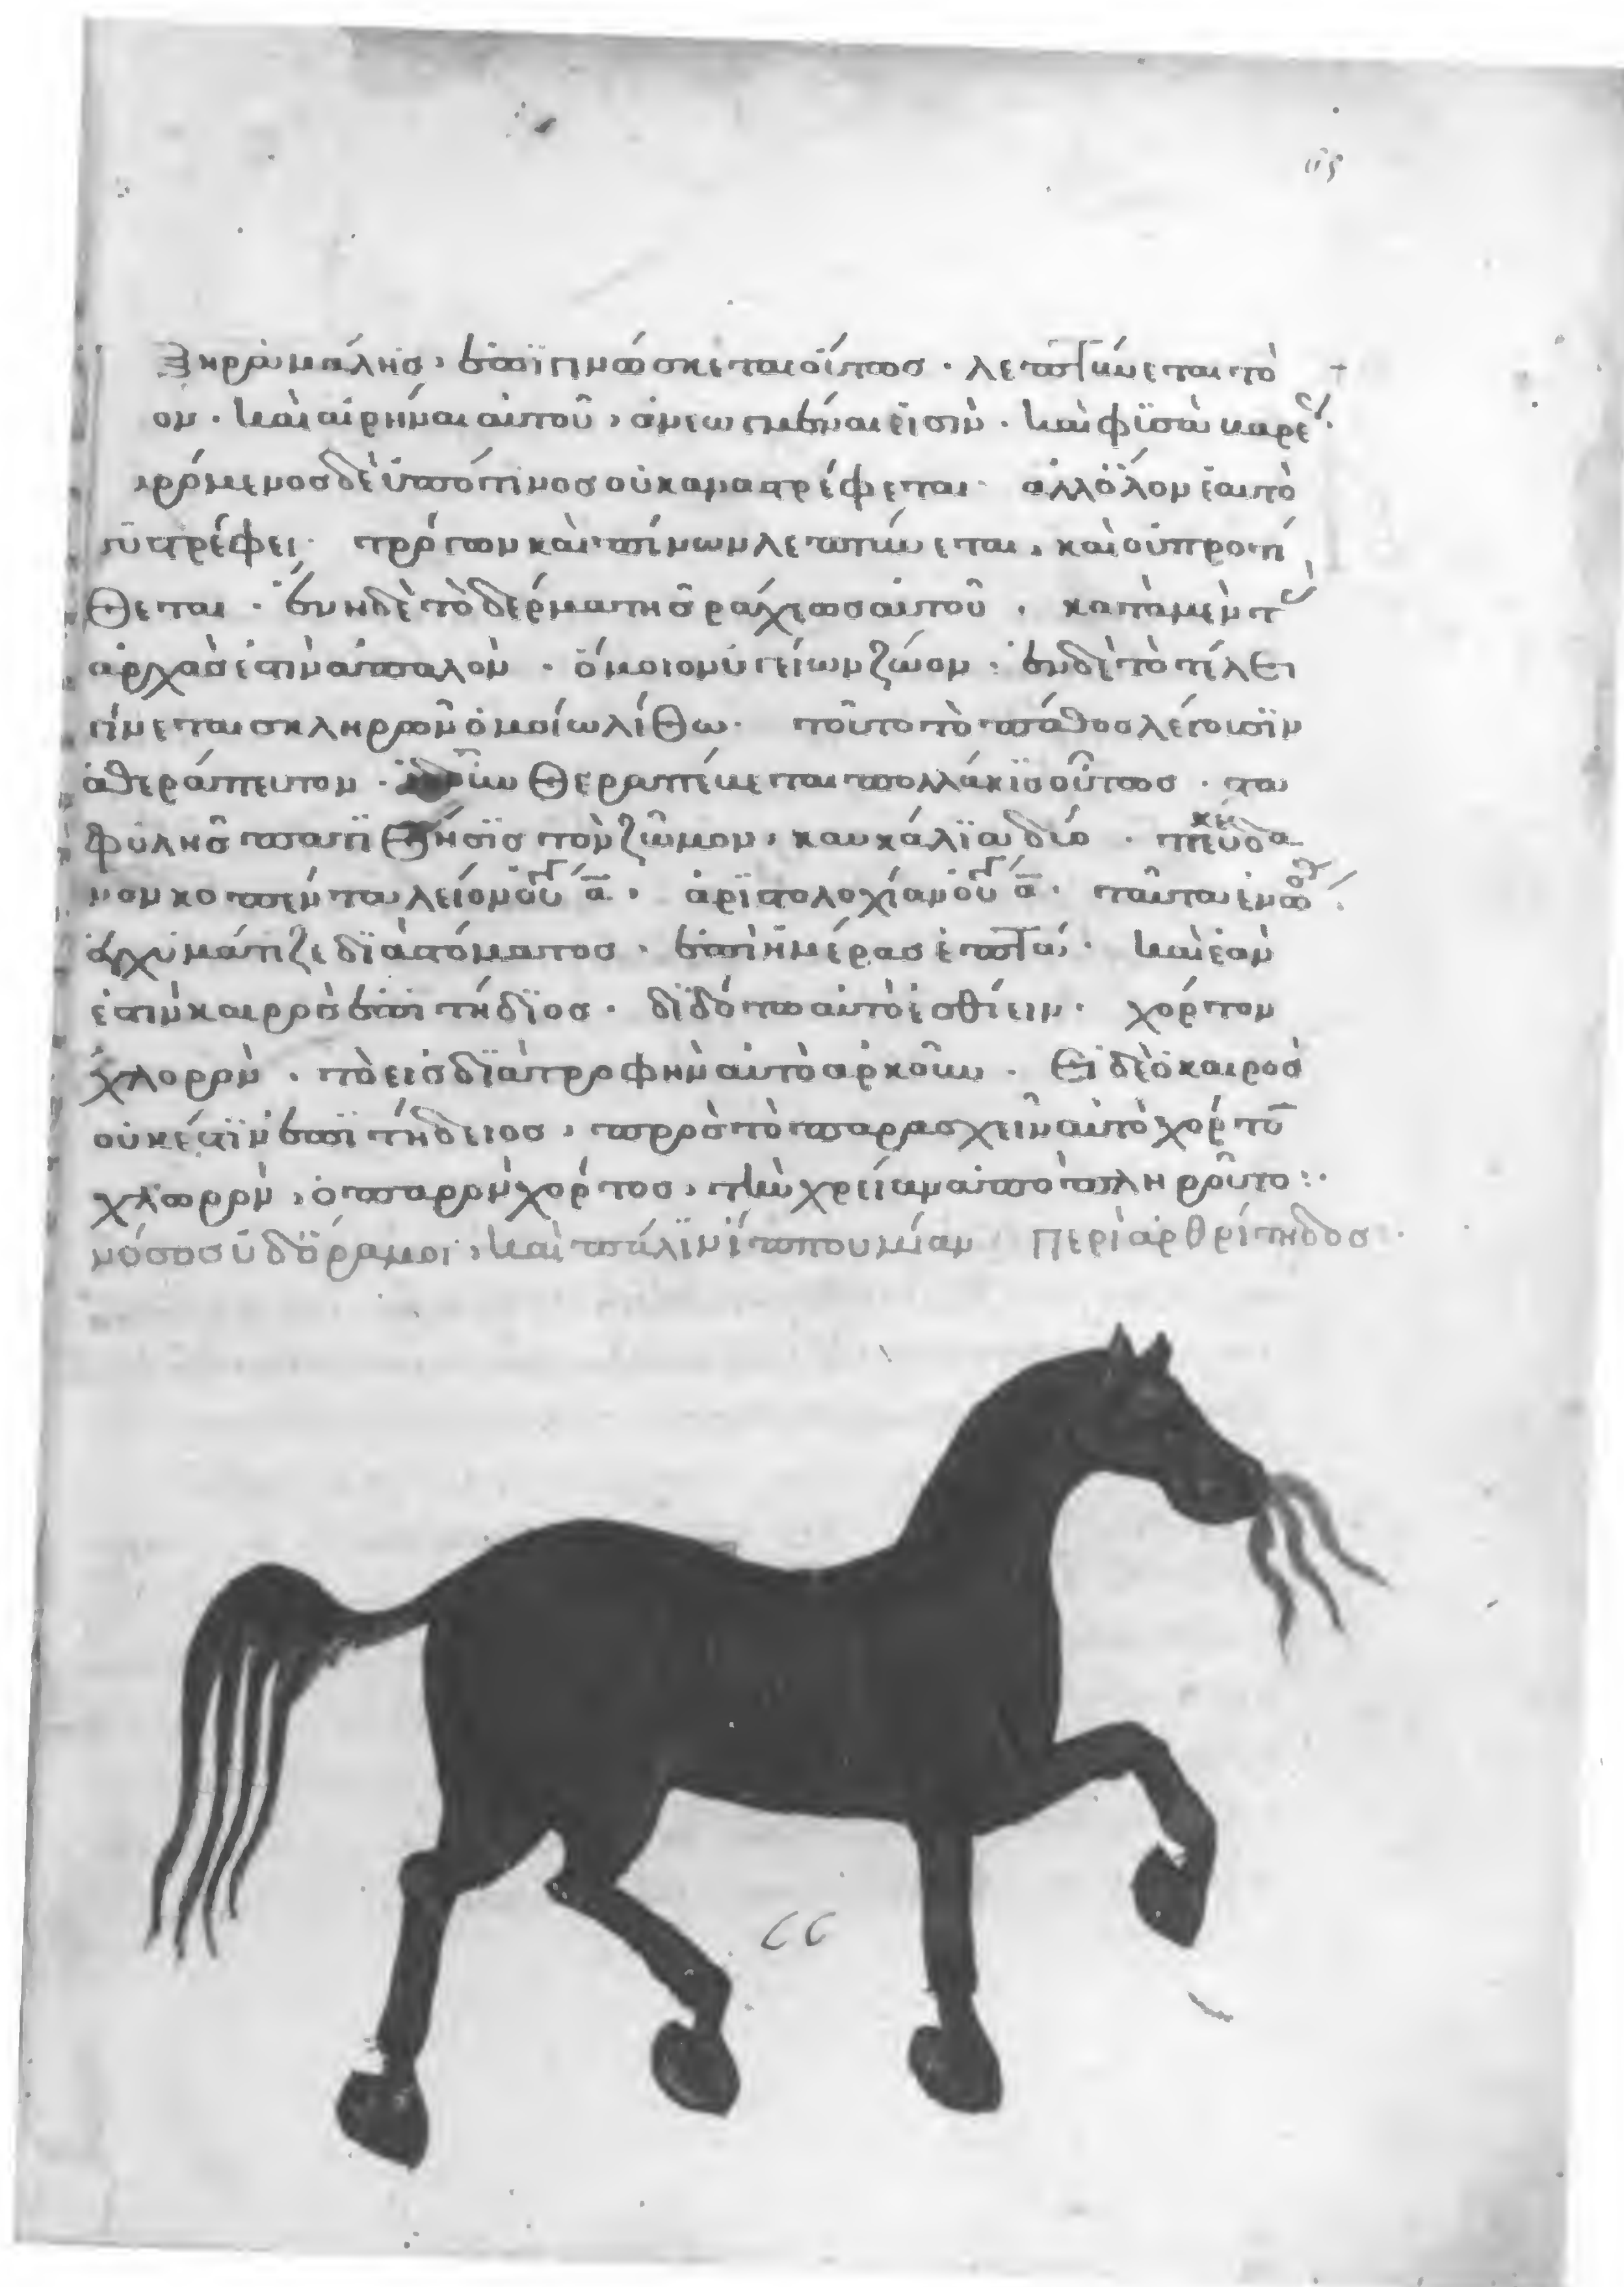 Ξηρὰ μάλησ, ἐπϊγινώσκεται οὕτωσ · λεπτύνεται τὸ
ον · καὶ αἱ ρῆναι αὐτοῦ, ἀνεωγμέναι εἰσὶν · καὶ φϋσᾶ
δὲ ὑπόπϊνοσ οὐκ ἀναστρέφεται · ἀλλ' ὅλον ἑαυτὸ
συστρέφει · τρώγων καὶ πίνων λεπτύνεται, καὶ οὐ προστί
θεται · ἐν ἡ δὲ τὸ δέρμα τῆσ ράχεωσ αὐτοῦ, κατὰ μὲν τ
ἀρχὰσ ἐστὶν ἁπαλὸν · ὅμοιον ὑγίων ζώον · ἐν δὲ τὸ τέλει
γίνεται σκληρρὸν ὁμοίω λίθω · τοῦτο τὸ πάθοσ λέγουσϊν
ἀθεράπευτον · θεραπεύεται πολλάκϊσ οὕτωσ · τα
φύλησ ζῶμον, καυκάλϊα δύο · πευδα
νον κοπέντα λεῖον οὐγ α · ἀρϊστολοχίαν οὐγ α · ταῦτα ἑνώ
ἐγχυμάτιζε δϊὰ στόματοσ · ἐπὶ ἡμέρασ ἑπτά · καὶ ἐὰν
ἐστὶν καιρρὸσ ἐπϊτήδϊοσ · δϊδότω αὐτὸ ἐσθίειν · χόρτον
χλορρὸν · τὸ εἰσ δϊατροφὴν αὐτὸ ἀρκοῦν · Εἰ δὲ ὁ καιροσ
οὐκ ἔστϊν ἐπϊτήδειοσ, πρρὸσ τὸ παρρασχεῖν αὐτὸ χόρτο
χλωρρὸν, ὁ παρρὸν χόρτοσ, τὴν χρείαν ἀποπληρροῦτο :·
νόσοσ ὑδόραμοι, καὶ πάλϊν Περὶ ἀρθρίτηδοσ ·